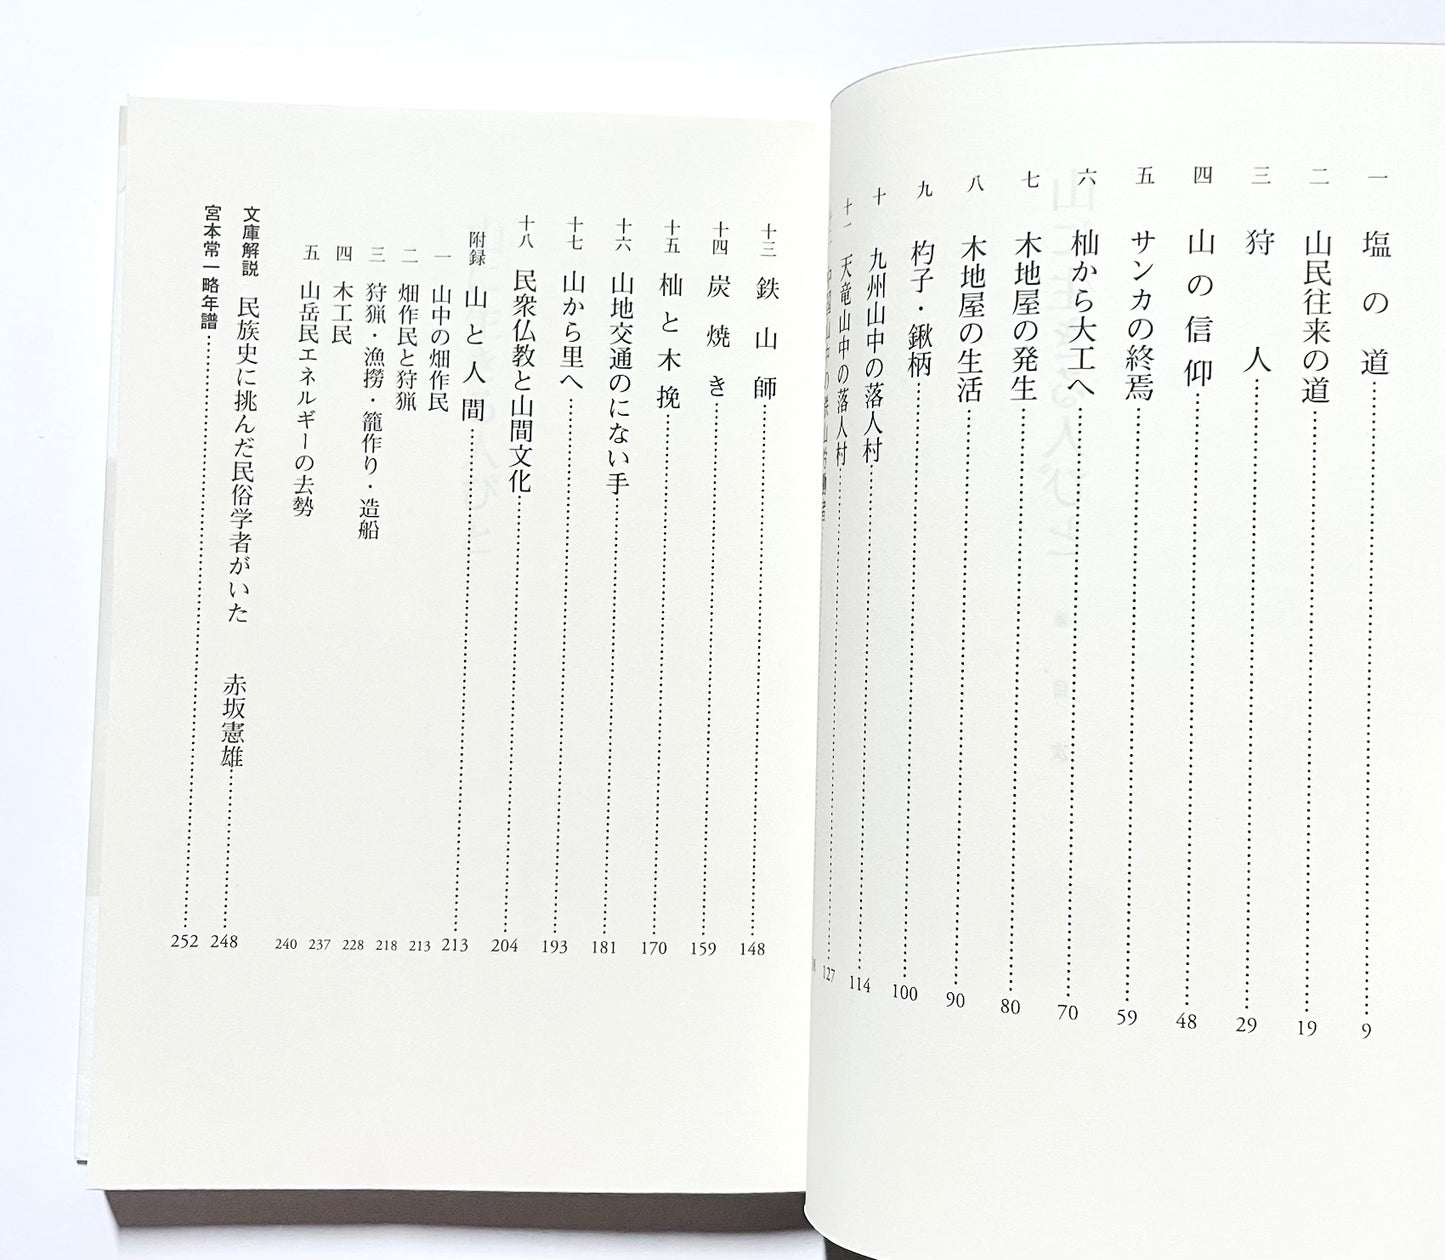 一 塩の道……9
二 山民往来の道……19
三 狩人……29
四 山の信仰……48
五 サンカの終焉……59
六 杣から大工へ……70
七 木地屋の発生……80
八 木地屋の生活……90
九 杓子・鍬柄……100
十 九州山中の落人村……114
十一 天竜山中の落人村……127
十三 鉄山師……148
十四 炭焼き……159
十五 杣と木挽……170
十六 山地交通のにない手……181
十七 山から里へ……193
十八 民衆仏教と山間文化……204
附録 山と人間……213
一 山中の畑作民 213
二 畑作民と狩猟 218
三 狩猟・漁撈・籠作り・造船 228
四 木工民 237
五 山岳民エネルギーの去勢 240
文庫解説 民族史に挑んだ民俗学者がいた 赤坂憲雄……248
宮本常一略年譜……252